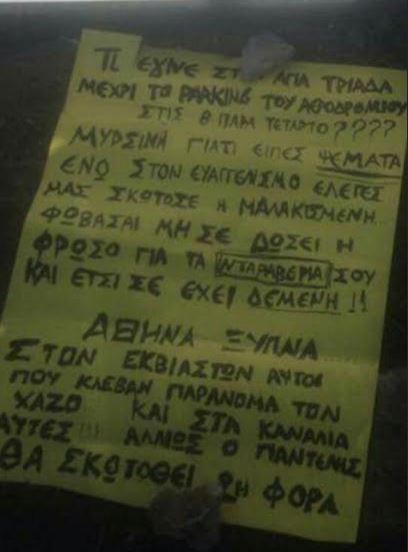 ΤΙ ΕΓΙΝΕ ΣΤΗΝ ΑΓΙΑ ΤΡΙΑΔΑ
ΜΕΧΡΙ ΤΟ PARKING ΤΟΥ ΑΕΡΟΔΡΟΜΙΟΥ
ΣΤΙΣ 8 ΠΑΜ ΤΕΤΑΡΤΟ ????
ΜΥΡΣΙΝΗ ΓΙΑΤΙ ΕΙΠΕΣ ΨΕΜΑΤΑ
ΕΝΩ ΣΤΟΝ ΕΥΑΓΓΕΝΙΣΜΟ ΕΛΕΓΕΣ
ΜΑΣ ΣΚΩΤΟΣΕ Η ΜΑΛΑΚΙΣΜΕΝΗ
ΦΩΒΑΣΑΙ ΜΗ ΣΕ ΔΩΣΕΙ Η
ΦΡΩΣΟ ΓΙΑ ΤΑ ΝΤΑΡΑΒΕΡΙΑ ΣΟΥ
ΚΑΙ ΕΤΣΙ ΣΕ ΕΧΕΙ ΔΕΜΕΝΗ !!
ΑΘΗΝΑ ΞΥΠΝΑ
ΣΤΟΝ ΕΚΒΙΑΣΤΩΝ ΑΥΤΟΙ
ΠΟΥ ΚΛΕΒΑΝ ΠΑΡΑΝΟΜΑ ΤΟΝ
ΧΑΖΟ ΚΑΙ ΣΤΑ ΚΑΝΑΛΙΑ
ΑΥΤΕΣ !!! ΑΛΛΙΩΣ Ο ΠΑΝΤΕΛΗΣ
ΘΑ ΣΚΩΤΟΘΕΙ 2Η ΦΟΡΑ